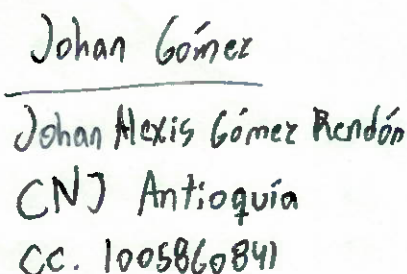 Johan Gómez
Johan Alexis Gómez Rendón
CNJ Antioquia
CC. 1005860841